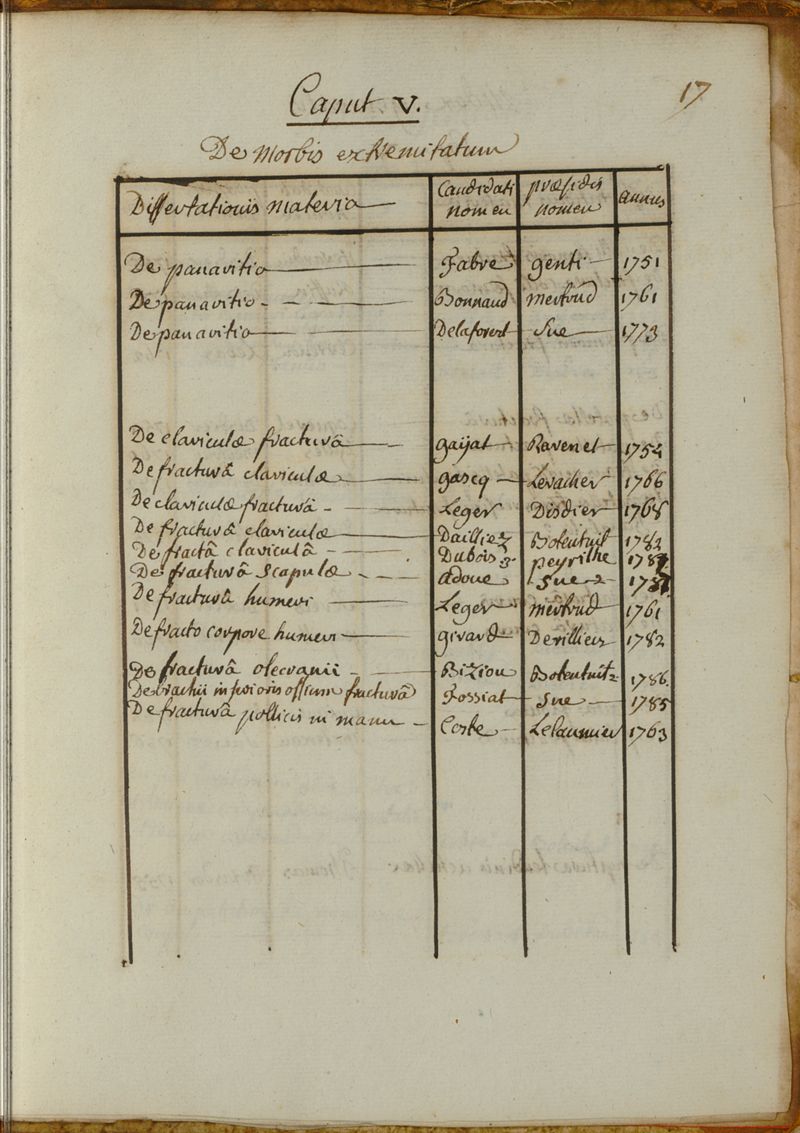 17
Caput. V.
De Morbis extremitatum
Dissertationis materia Candidati nomen præsidis nomen annus
De panaritio Fabre genti 1751
De panaritio Bonnaud mertrud 1761
De panaritio Delaforest Sue 1773
De claviculæ fracturâ gayat Ravenet 1752
De fracturâ claviculæ gascq Levacher 1766
De claviculæ fracturâ Leger Disdier 1768
De fracturâ claviculæ Dailliez Botentuit 1782
De fractâ claviculâ Dubois peyrilhe
De fracturâ scapulæ adoue Sue
De fracturâ humeri Leger mertrud 1761
De fracto corpore humeri girard Devilliers 1782
De fracturâ olecranii Biziou Botentuit 1786
De brachii inferioris ossium fracturâ Fossiat Sue 1785
De fracturâ pollicis in manu Corbe Lelaumier 1763